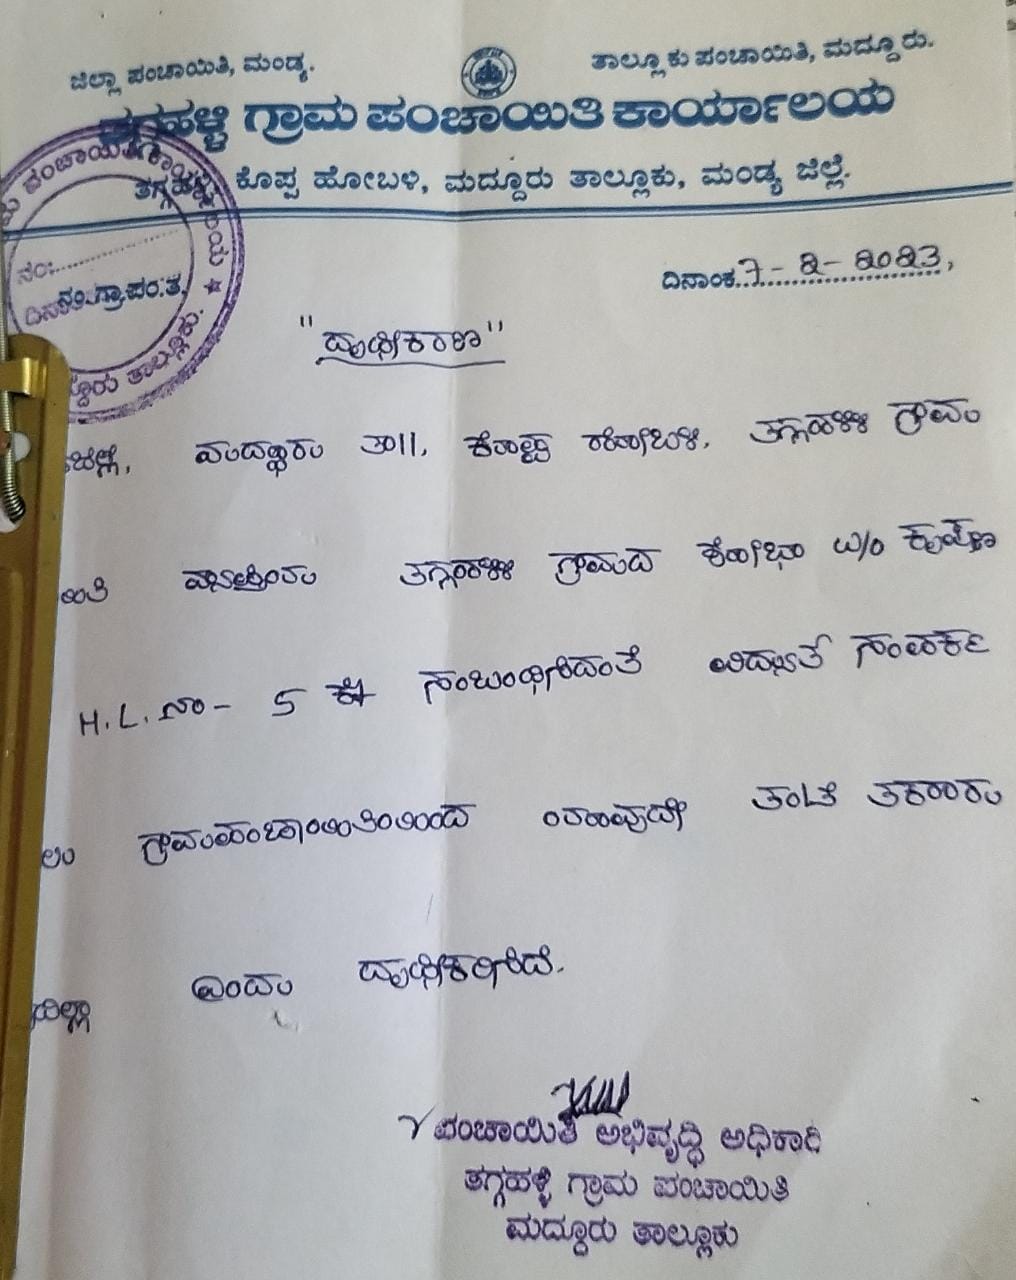 ಜಿಲ್ಲಾ ಪಂಚಾಯಿತಿ, ಮಂಡ್ಯ. ತಾಲ್ಲೂಕು ಪಂಚಾಯಿತಿ, ಮದ್ದೂರು.
ತಗ್ಗಹಳ್ಳಿ ಗ್ರಾಮ ಪಂಚಾಯಿತಿ ಕಾರ್ಯಾಲಯ
ತಗ್ಗಹಳ್ಳಿ ಕೊಪ್ಪ ಹೋಬಳಿ, ಮದ್ದೂರು ತಾಲ್ಲೂಕು, ಮಂಡ್ಯ ಜಿಲ್ಲೆ.
ನಂ:
ನಂ.ಗ್ರಾ.ಪಂ.ತ. ದಿನಾಂಕ 7-2-2023,
"ದೃಢೀಕರಣ"
ಜಿಲ್ಲೆ, ಮದ್ದೂರು ತಾ||, ಕೊಪ್ಪ ಹೋಬಳಿ, ತಗ್ಗಹಳ್ಳಿ ಗ್ರಾಮ
ಯಿತಿ ತಗ್ಗಹಳ್ಳಿ ಗ್ರಾಮದ ಶೋಭಾ W/O ಕೃಷ್ಣ
H.L.ನಂ- 5 ಕ್ಕೆ ಸಂಬಂಧಿಸಿದಂತೆ ವಿದ್ಯುತ್ ಸಂಪರ್ಕ
ಲು ಗ್ರಾಮಪಂಚಾಯಿತಿಯಿಂದ ಯಾವುದೇ ತಂಟೆ ತಕರಾರು
ವಿಲ್ಲಾ ಎಂದು ದೃಢೀಕರಿಸಿದೆ.
ಪಂಚಾಯಿತಿ ಅಭಿವೃದ್ಧಿ ಅಧಿಕಾರಿ
ತಗ್ಗಹಳ್ಳಿ ಗ್ರಾಮ ಪಂಚಾಯಿತಿ
ಮದ್ದೂರು ತಾಲ್ಲೂಕು